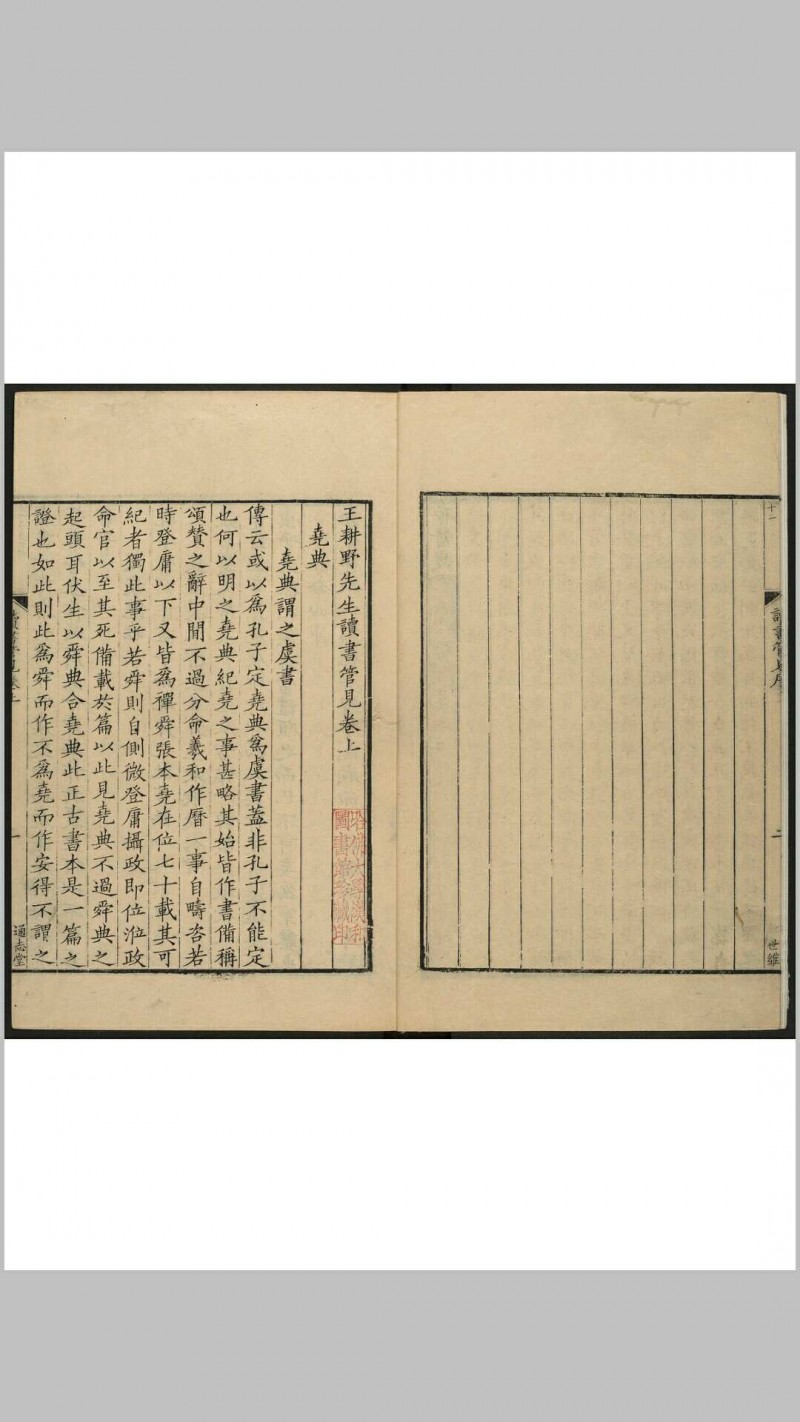 十一
讀書管見序
世維
王耕野先生讀書管見卷上
堯典
堯典謂之虞書
傳云或以爲孔子定堯典爲虞書蓋非孔子不能定
也何以明之堯典紀堯之事甚略其始皆作書備稱
頌贊之辭中閒不過分命羲和作曆一事自疇咨若
時登庸以下又皆爲禪舜張本堯在位七十載其可
紀者獨此事乎若舜則自側微登庸攝政即位涖政
命官以至其死備載於篇以此見堯典不過舜典之
起頭耳伏生以舜典合堯典此正古書本是一篇之
證也如此則此爲舜而作不爲堯而作安得不謂之
讀書管見卷上
一
通志堂